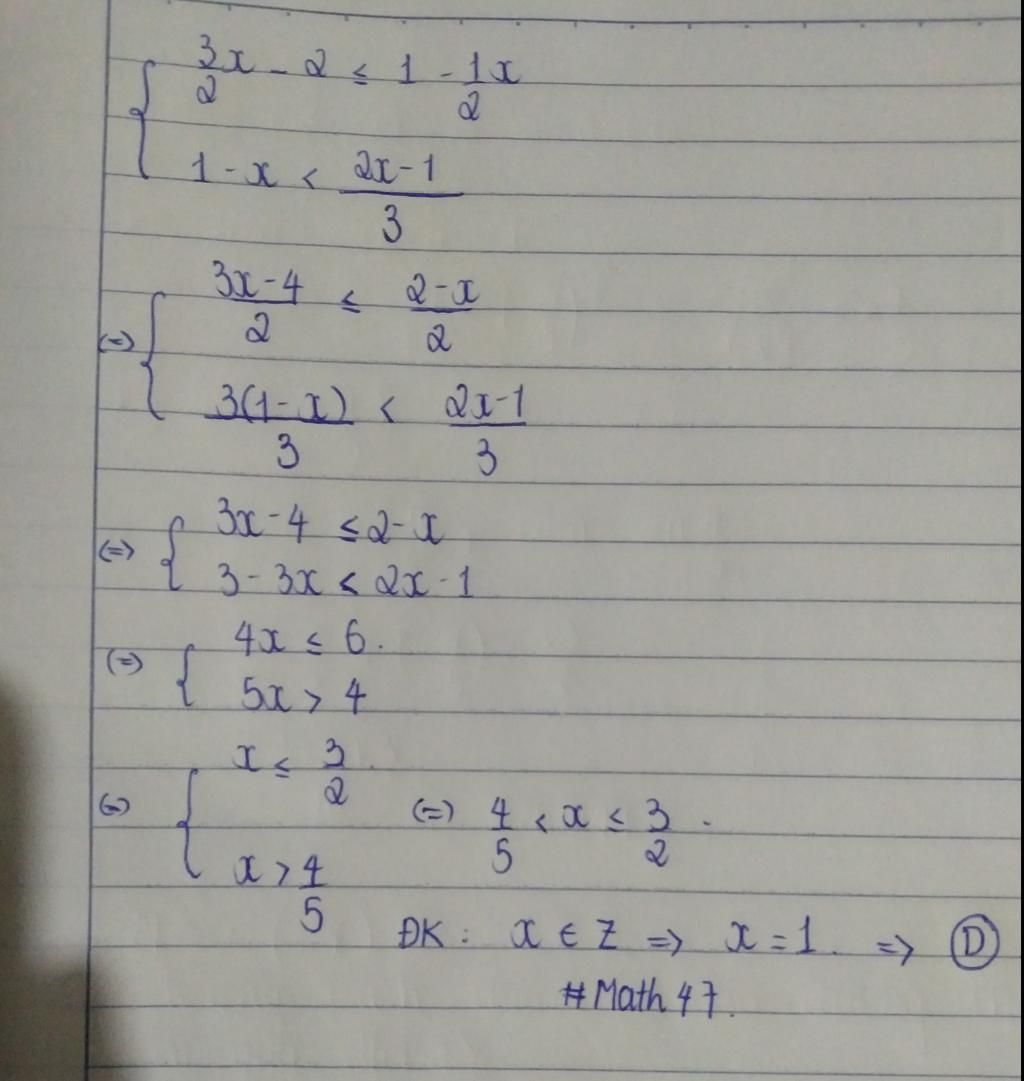 { 3/2 x - 2 ≤ 1 - 1/2 x
1 - x < (2x-1)/3
(=) { (3x-4)/2 ≤ (2-x)/2
3(1-x)/3 < (2x-1)/3
(=) { 3x-4 ≤ 2-x
3 - 3x < 2x - 1
(=) { 4x ≤ 6.
5x > 4
(=) { x ≤ 3/2. (=) 4/5 < x ≤ 3/2.
x > 4/5
ĐK: x ∈ Z => x = 1. => D
#Math 47.